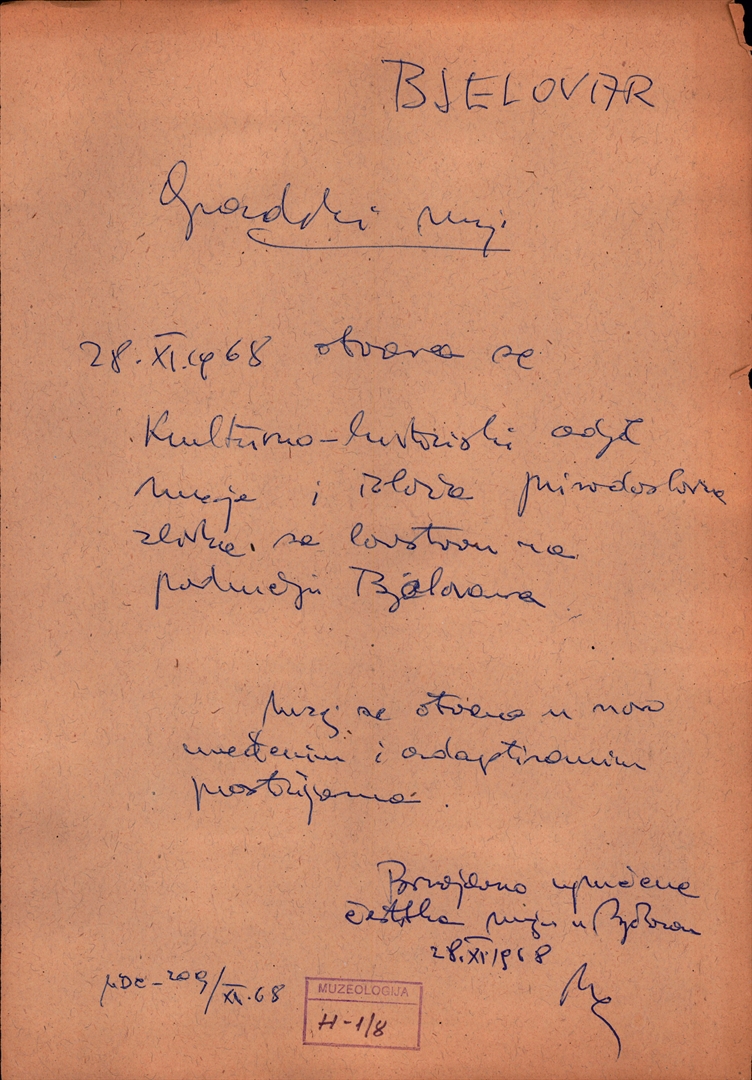 BJELOVAR
Gradski muzej
28.XI.1968 otvara se
Kulturno-historijski odjel
muzeja i izložba prirodoslovne
zbirke sa lovstvom na
području Bjelovara
Muzej se otvara u novo
uređenim i adaptiranim
prostorijama
Brzojavno upućene
čestitka muzeju u Bjelovaru
28.XI.1968
MDC-209/XI.68
MUZEOLOGIJA
H-1/8